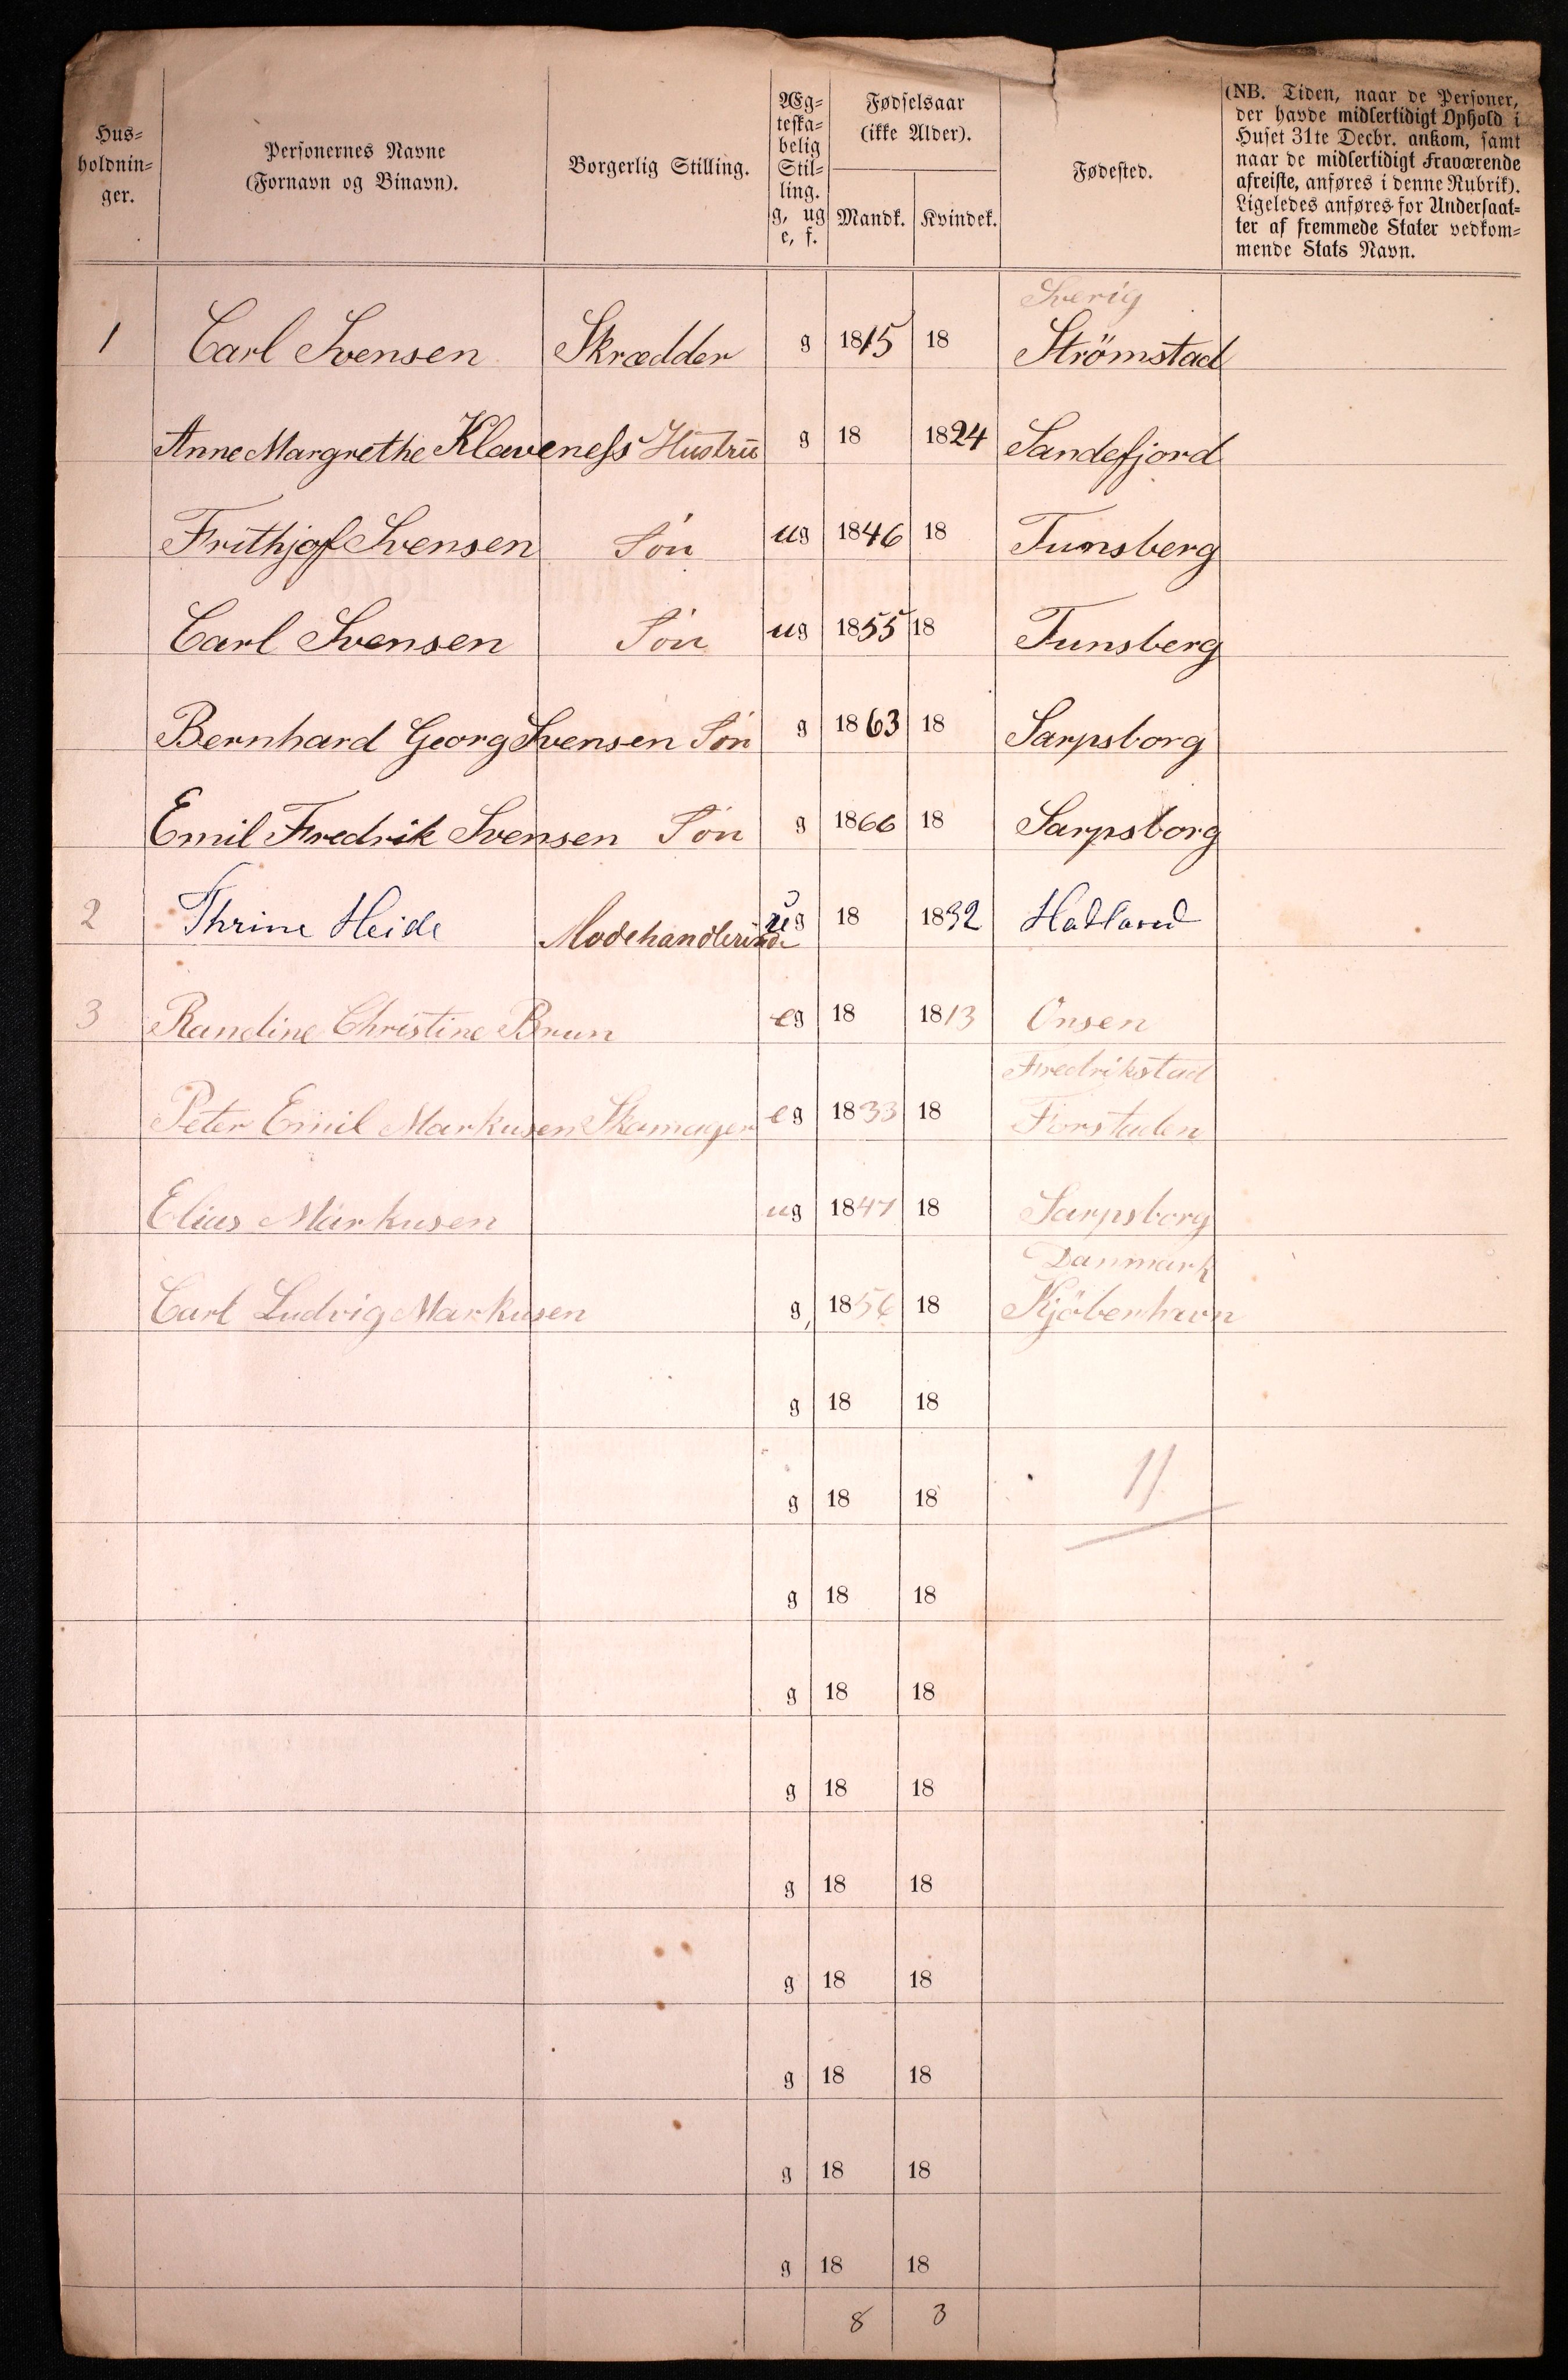 Hus=
holdnin=
ger.
Personernes Navne
(Fornavn og Binavn).
Borgerlig Stilling.
Æg=
teska=
belig
Stil=
ling.
g, ug
e, f.
Fødselsaar
(ikke Alder).
Mandk. Kvindek.
Fødested.
(NB. Tiden, naar de Personer,
der havde midlertidigt Ophold i
Huset 31te Decbr. ankom, samt
naar de midlertidigt Fraværende
afreiste, anføres i denne Rubrik).
Ligeledes anføres for Undersaat=
ter af fremmede Stater vedkom=
mende Stats Navn.
Sverig
1 Carl Svensen Skrædder g 1815 18 Strömstad
Anne Margrethe Klaveness Hustru g 18 1824 Sandefjord
Frithjof Svensen Søn ug 1846 18 Tunsberg
Carl Svensen Søn ug 1855 18 Tunsberg
Bernhard Georg Svensen Søn g 1863 18 Sarpsborg
Emil Fredrik Svensen Søn g 1866 18 Sarpsborg
2 Thrine Heide Modehandlerinde ug 18 1832 Hadland
3 Randine Christine Brun eg 18 1813 Onsen
Fredrikstad
Peter Emil Markusen Skomager eg 1833 18 Forstaden
Elias Markusen ug 1847 18 Sarpsborg
Danmark
Carl Ludvig Markusen g 1856 18 Kjöbenhavn
g 18 18
g 18 18 11
g 18 18
g 18 18
g 18 18
g 18 18
g 18 18
g 18 18
g 18 18
g 18 18
8 3